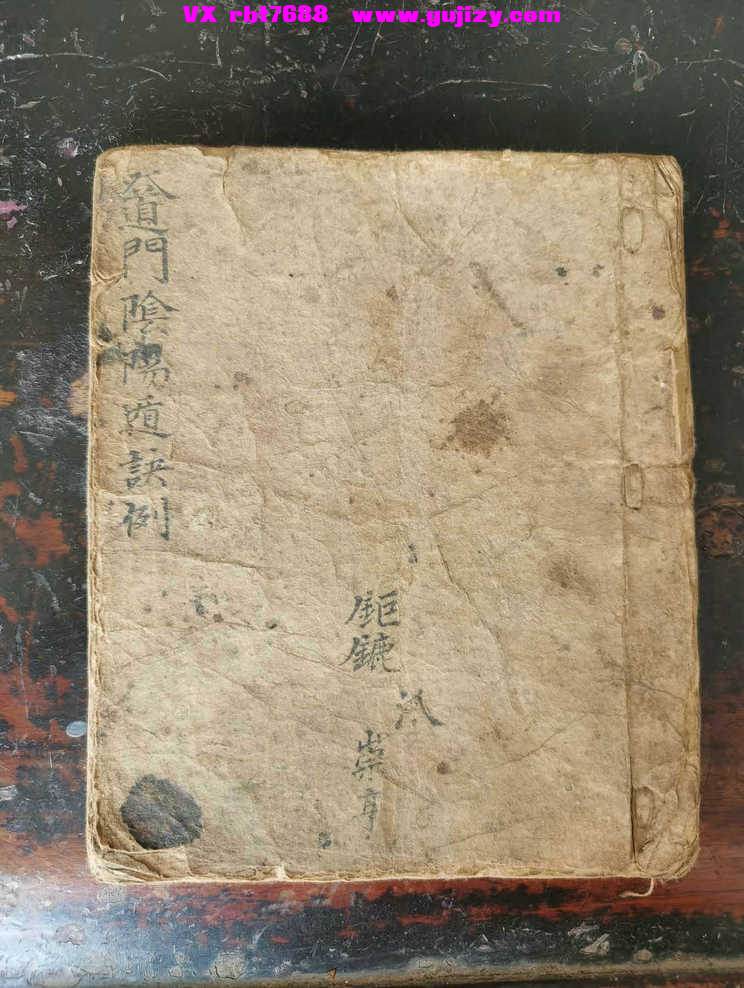 VX rbt7688 www.gujizy.com
道門陰陽遁訣例
鉅鏕
崇亨